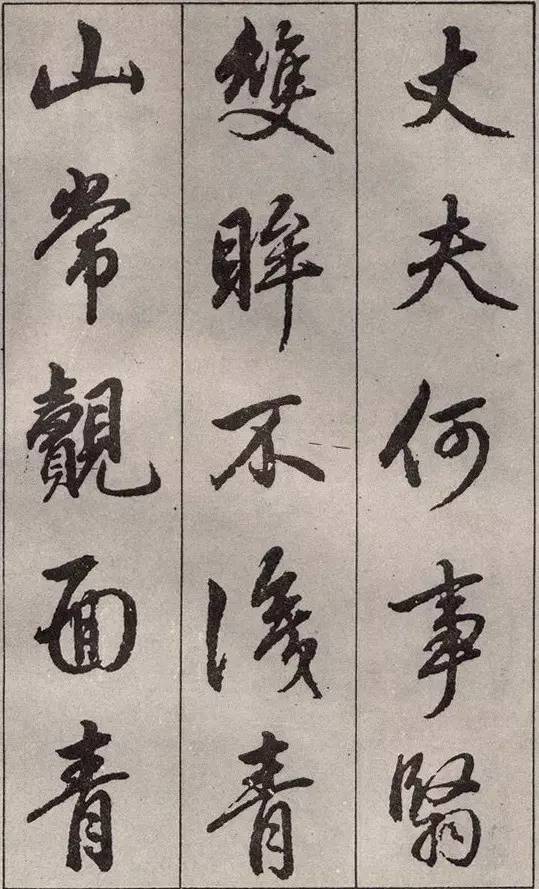 丈夫何事翳
雙眸不後青
山常覿面青